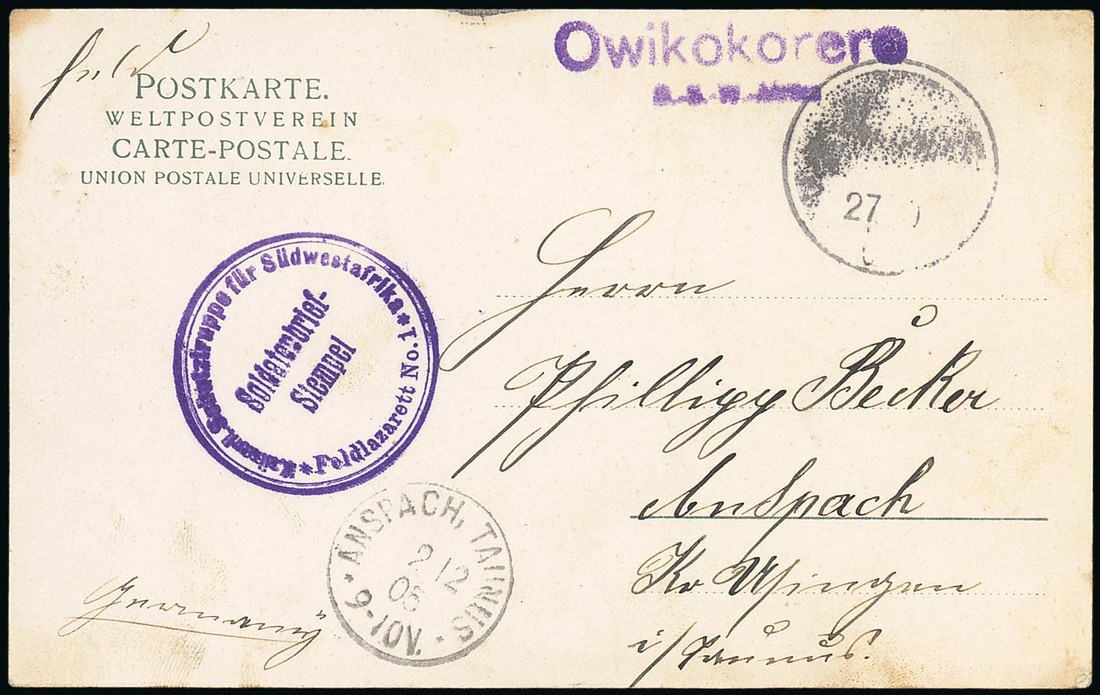 Owikokorero
Feld
POSTKARTE.
WELTPOSTVEREIN
CARTE-POSTALE.
UNION POSTALE UNIVERSELLE.
27
Kaiserl. Schutztruppe für Südwestafrika * Feldlazarett No. 1 *
Soldatenbrief-
Stempel
Herrn
Phillipp Becker
Anspach
Kr Usingen
i/Taunus.
* ANSPACH, TAUNUS * 6-10V
2 12
05
Germany